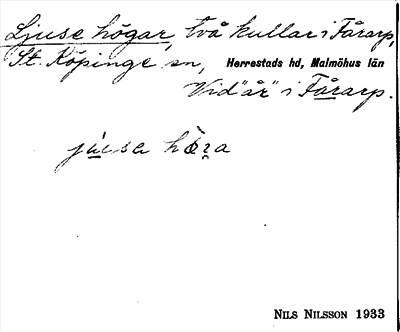 Ljuse högar, två kullar i Fårarp,
St. Köpinge sn, Herrestads hd, Malmöhus län
Vid "år" i Fårarp.
jusa
Nils Nilsson 1933